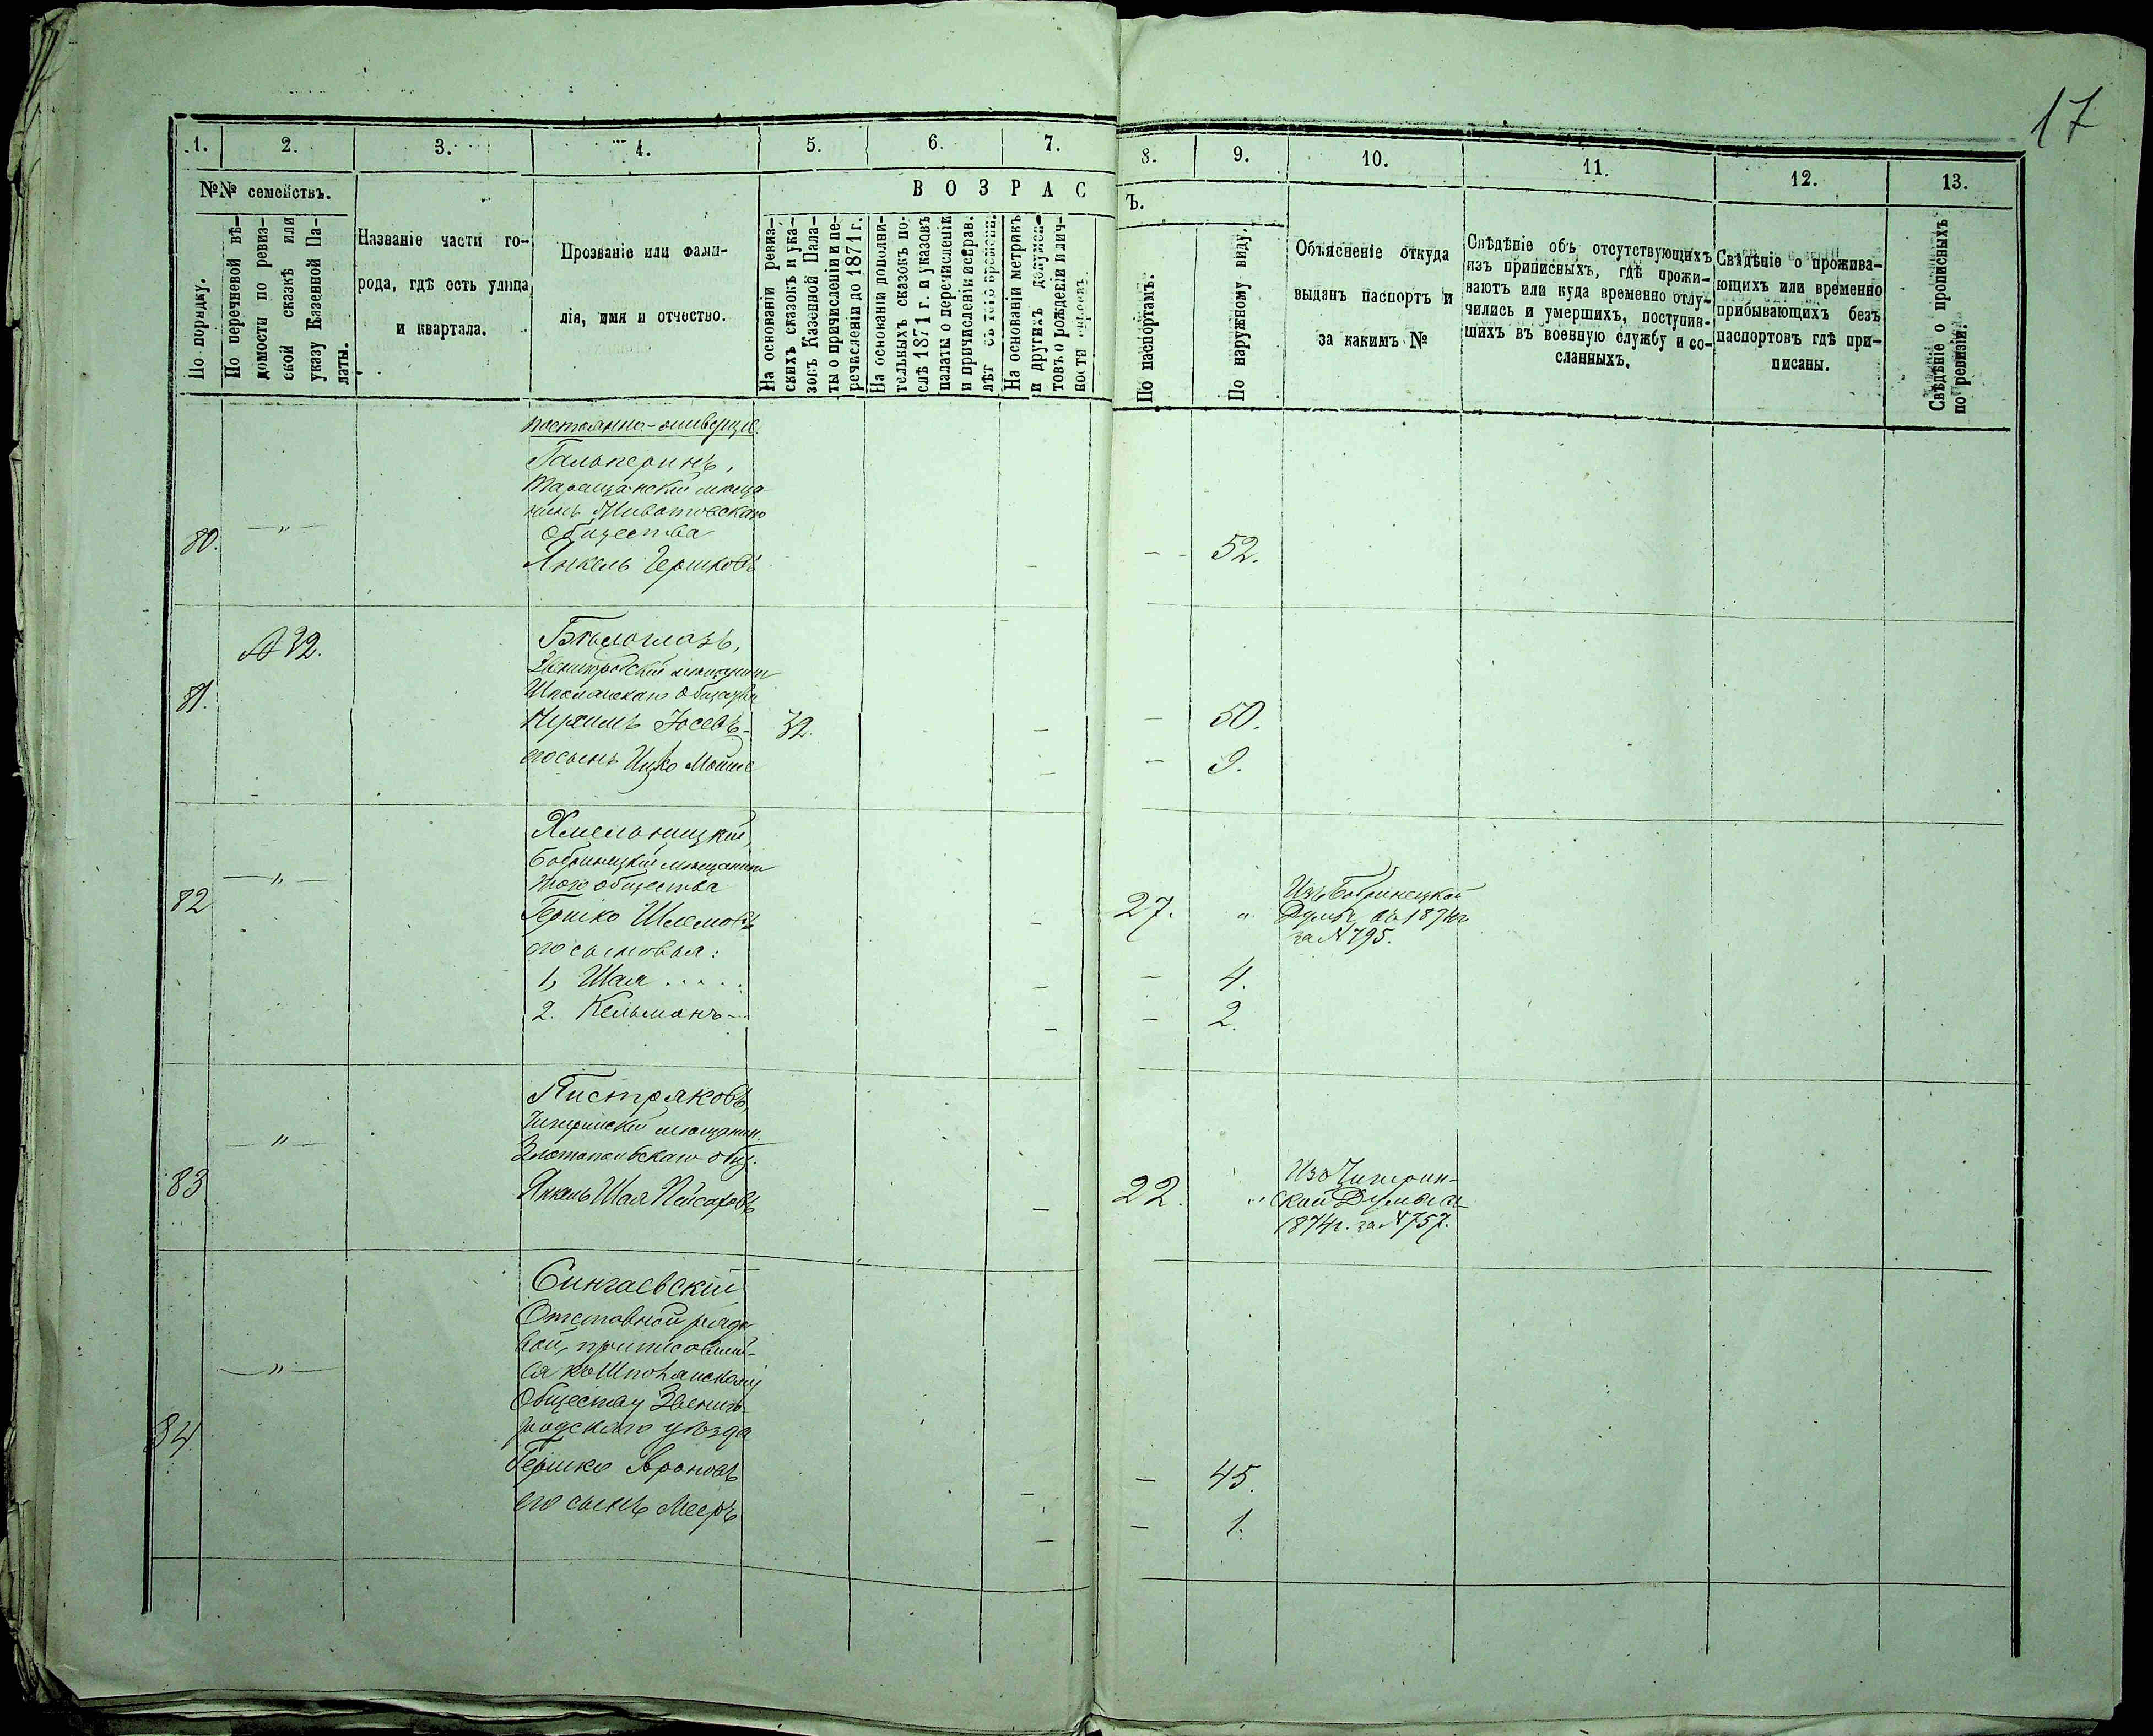 17
1. 2. 3. 4. 5. 6. 7. 8. 9. 10. 11. 12. 13.
№№ семействъ.
По порядку.
По перечневой вѣ-
домости по ревиз-
ской сказкѣ или
указу Казенной Па-
латы.
Названіе части го-
рода, гдѣ есть улица
и квартала.
Прозваніе или фами-
лія, имя и отчество.
ВОЗРАСТЪ.
На основаніи ревиз-
скихъ сказокъ и ука-
зовъ Казенной Пала-
ты о причисленіи и пе-
речисленіи до 1871 г.
На основаніи дополни-
тельныхъ сказокъ по-
слѣ 1871 г. и указовъ
палаты о перечисленіи
и причисленіи исправ.
лѣт съ того времени.
На основаніи метрикъ
и другихъ докумен-
товъ о рожденіи и лич-
ности
По паспортамъ.
По наружному виду.
Объясненіе откуда
выданъ паспортъ и
за какимъ №
Свѣдѣніе объ отсутствующихъ
изъ приписныхъ, гдѣ прожи-
ваютъ или куда временно отлу-
чились и умершихъ, поступив-
шихъ въ военную службу и со-
сланныхъ.
Свѣдѣніе о прожива-
ющихъ или временно
прибывающихъ безъ
паспортовъ гдѣ при-
писаны.
Свѣдѣніе о прописныхъ
по ревизіи.
постоянно-живущіе.
Гальперинъ,
Таращанскій мѣща
нинъ Животовскаго
Общества
80. — " —
Янкель Гершковъ — — 52.
№ 32.
Бѣлоглазъ,
Звенигородскій мѣщанинъ
Шполянскаго Общества
81.
Нухимъ Іосевъ 32. — — 50.
его сынъ Ицко Мошко — — 9.
Хмельницкій,
Бобринецкій мѣщанинъ
того общества
82 — " —
Гершко Шлемовъ — 27. " Изъ Бобринецкой
Думы въ 1874 г
за № 795.
его сыновья:
1, Шая . . . . . — — 4.
2. Кельманъ — — 2.
Пистряковъ,
Чигринскій мѣщанин.
Златопольскаго общ.
83 — " —
Янкель Шая Пейсаховъ — 22. " Изъ Чигрин-
ской Думы въ
1874 г. за № 757.
Сингаевскій
Отставной рядо
вой, приписавшій-
ся къ Шполянскому
Обществу Звениго
родскаго уѣзда
84. — " —
Гершко Ароновъ — — 45.
его сынъ Мееръ — — 1.